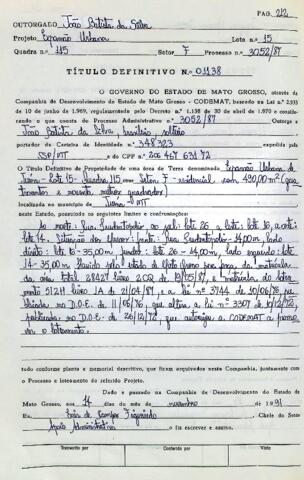 PAG. 212
OUTORGADO João Batista da Silva
Projeto Expansão Urbana Lote n.o 15
Quadra n.o 115 Setor F Processo n.o 3052/87
TÍTULO DEFINITIVO N.o 01138
O GOVERNO DO ESTADO DE MATO GROSSO, através da
Companhia de Desenvolvimento do Estado de Mato Grosso - CODEMAT, baseado na Lei n.o 2.933
de 10 de junho de 1969, regulamentada pelo Decreto n.o 1.138 de 30 de abril de 1.970 e considerando
o que consta do Processo Administrativo n.o 3052/87 Outorga a
João Batista da Silva, brasileiro, solteiro
portador da Carteira de Identidade n.o 348323 expedida pela
SSP/MT e do CPF n.o 206 467 631 72
O Título Definitivo de Propriedade de uma área de Terra denominada Expansão Urbana
de Juína - lote 15 - Quadra 115 - Setor F - residencial, com 490,00 m² (quatrocentos
e noventa metros quadrados)
localizada no município de Juína - MT
neste Estado, possuindo os seguintes limites e confrontações:
Ao norte: Rua ; ao sul: lote 26 a leste: lote 16, a oeste:
lote 14. frente: Rua - 14,00m, lado
direito: lote 16 - 35,00m fundo: lote 26 - 14,00m, lado esquerdo: lote
14 - 35,00m. da matrícula
livro 2CQ de 19/05/87, e matrícula do
51211 livro 1A de 21/04/87, e a lei nº 3744 de 10/06/76, publicada
no D.O.E. de 11/06/76, que altera a lei nº 3307 de 10/12/72,
publicada no D.O.E. de 26/12/72, que autoriza a CODEMAT a
o loteamento.
tudo conforme planta e memorial descritivo, que ficam arquivados nesta Companhia, juntamente com
o Processo e loteamento do referido Projeto.
Dado e passado na Companhia de Desenvolvimento do Estado de
Mato Grosso, aos 14 dias do mês de novembro de 1991
Eu, de Campos Figueiredo Chefe do Setor
Apoio Administrativo o fiz escrever e assino.
Transcrito por Conferido por Visto